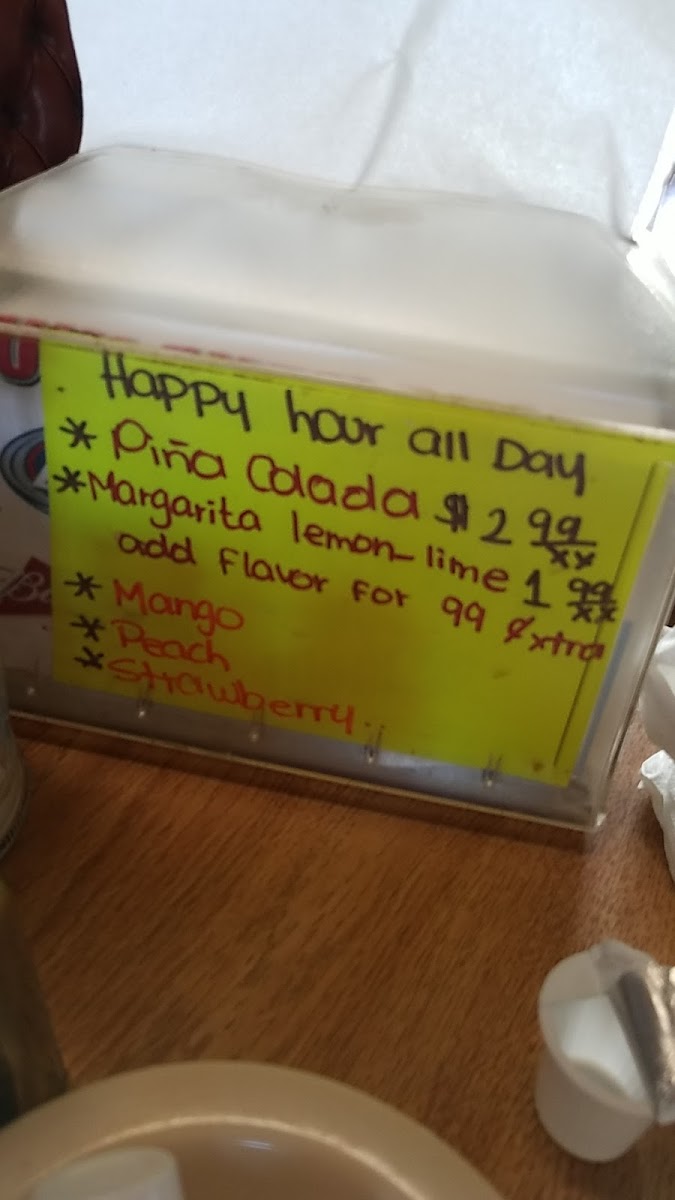 Happy hour all Day
* Piña Colada $2 99/xx
* Margarita lemon-lime 1 99/xx
add Flavor For 99 ¢xtra
* Mango
* Peach
* Strawberry..